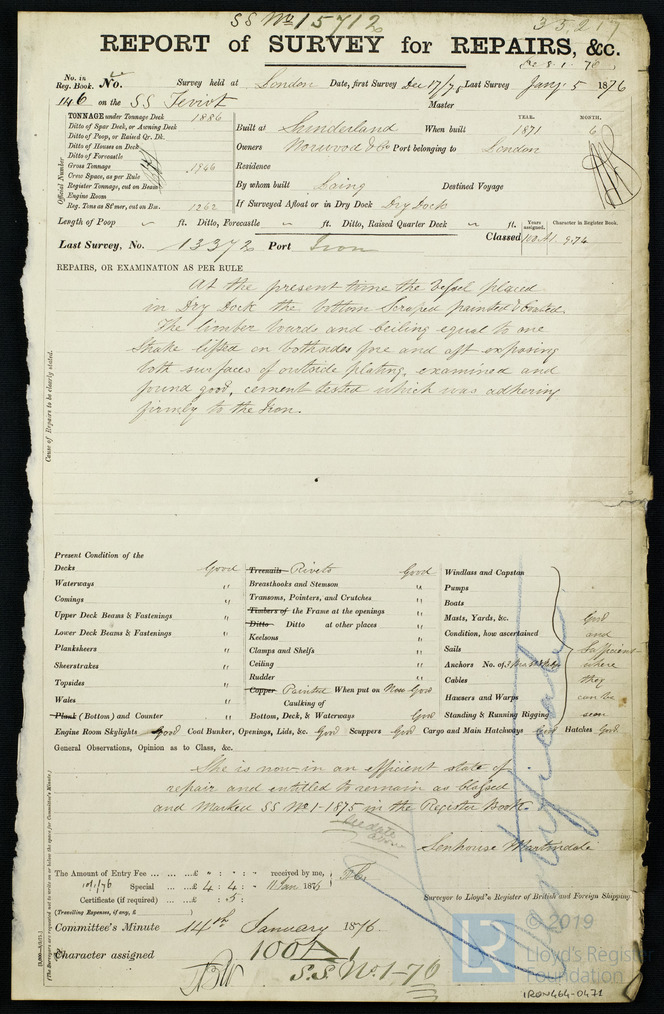 SS No 15712
35217
REPORT of SURVEY for REPAIRS, &c.
No. in Reg. Book. No. Survey held at London Date, first Survey Dec 17/75 Last Survey Jany 5 1876
146 on the SS Teviot Master
TONNAGE under Tonnage Deck 1886
Ditto of Spar Deck, or Awning Deck
Ditto of Poop, or Raised Qr. Dk.
Ditto of Houses on Deck
Ditto of Forecastle
Gross Tonnage 1946
Crew Space, as per Rule
Register Tonnage, cut on Beam
Engine Room
Reg. Tons as St'mer, cut on Bm. 1262
Official Number
Built at Sunderland When built YEAR. 1871 MONTH. 6
Owners Norwood & Co Port belonging to London
Residence
By whom built Laing Destined Voyage
If Surveyed Afloat or in Dry Dock Dry Dock
Length of Poop ft. Ditto, Forecastle ft. Ditto, Raised Quarter Deck ft.
Years assigned. Character in Register Book.
Last Survey, No. 13372 Port Iron Classed 100A1 9.74
REPAIRS, OR EXAMINATION AS PER RULE
At the present time the Vessel placed
in Dry Dock the bottom Scraped painted & Coated.
The limber boards and ceiling equal to one
Strake lifted on both sides fore and aft exposing
both surfaces of outside plating, examined and
found good, cement tested which was adhering
firmly to the Iron.
Cause of Repairs to be clearly stated.
Present Condition of the
Decks Good
Waterways "
Comings "
Upper Deck Beams & Fastenings "
Lower Deck Beams & Fastenings "
Planksheers "
Sheerstrakes "
Topsides "
Wales "
Plank (Bottom) and Counter "
Treenails Rivets Good
Breasthooks and Stemson "
Transoms, Pointers, and Crutches "
Timbers of the Frame at the openings "
Ditto Ditto at other places "
Keelsons "
Clamps and Shelfs "
Ceiling "
Rudder "
Copper Painted When put on Now Good
Caulking of
Bottom, Deck, & Waterways Good
Windlass and Capstan
Pumps
Boats
Masts, Yards, &c.
Condition, how ascertained
Sails
Anchors No. of
Cables
Hawsers and Warps
Standing & Running Rigging
Good
and
Sufficient
where
they
can be
seen
Engine Room Skylights Good Coal Bunker, Openings, Lids, &c. Good Scuppers Good Cargo and Main Hatchways Good Hatches Good
General Observations, Opinion as to Class, &c.
She is now in an efficient state of
repair and entitled to remain as Classed
and Marked SS No 1-1875 in the Register Book.
See date above
Senhouse Martindale
The Amount of Entry Fee ... £ : : received by me,
Special ... £ 4 : 4 : 11 Jan 1876
Certificate (if required) ... : 5 :
(Travelling Expenses, if any, £ )
Surveyor to Lloyd's Register of British and Foreign Shipping.
Committee's Minute 14th January 1876.
Character assigned 100A1
S.S. No. 1-76
(The Surveyors are requested not to write on or below the space for Committee's Minute.)
© 2019
Lloyd's Register
Foundation
LR
IRON464-0471